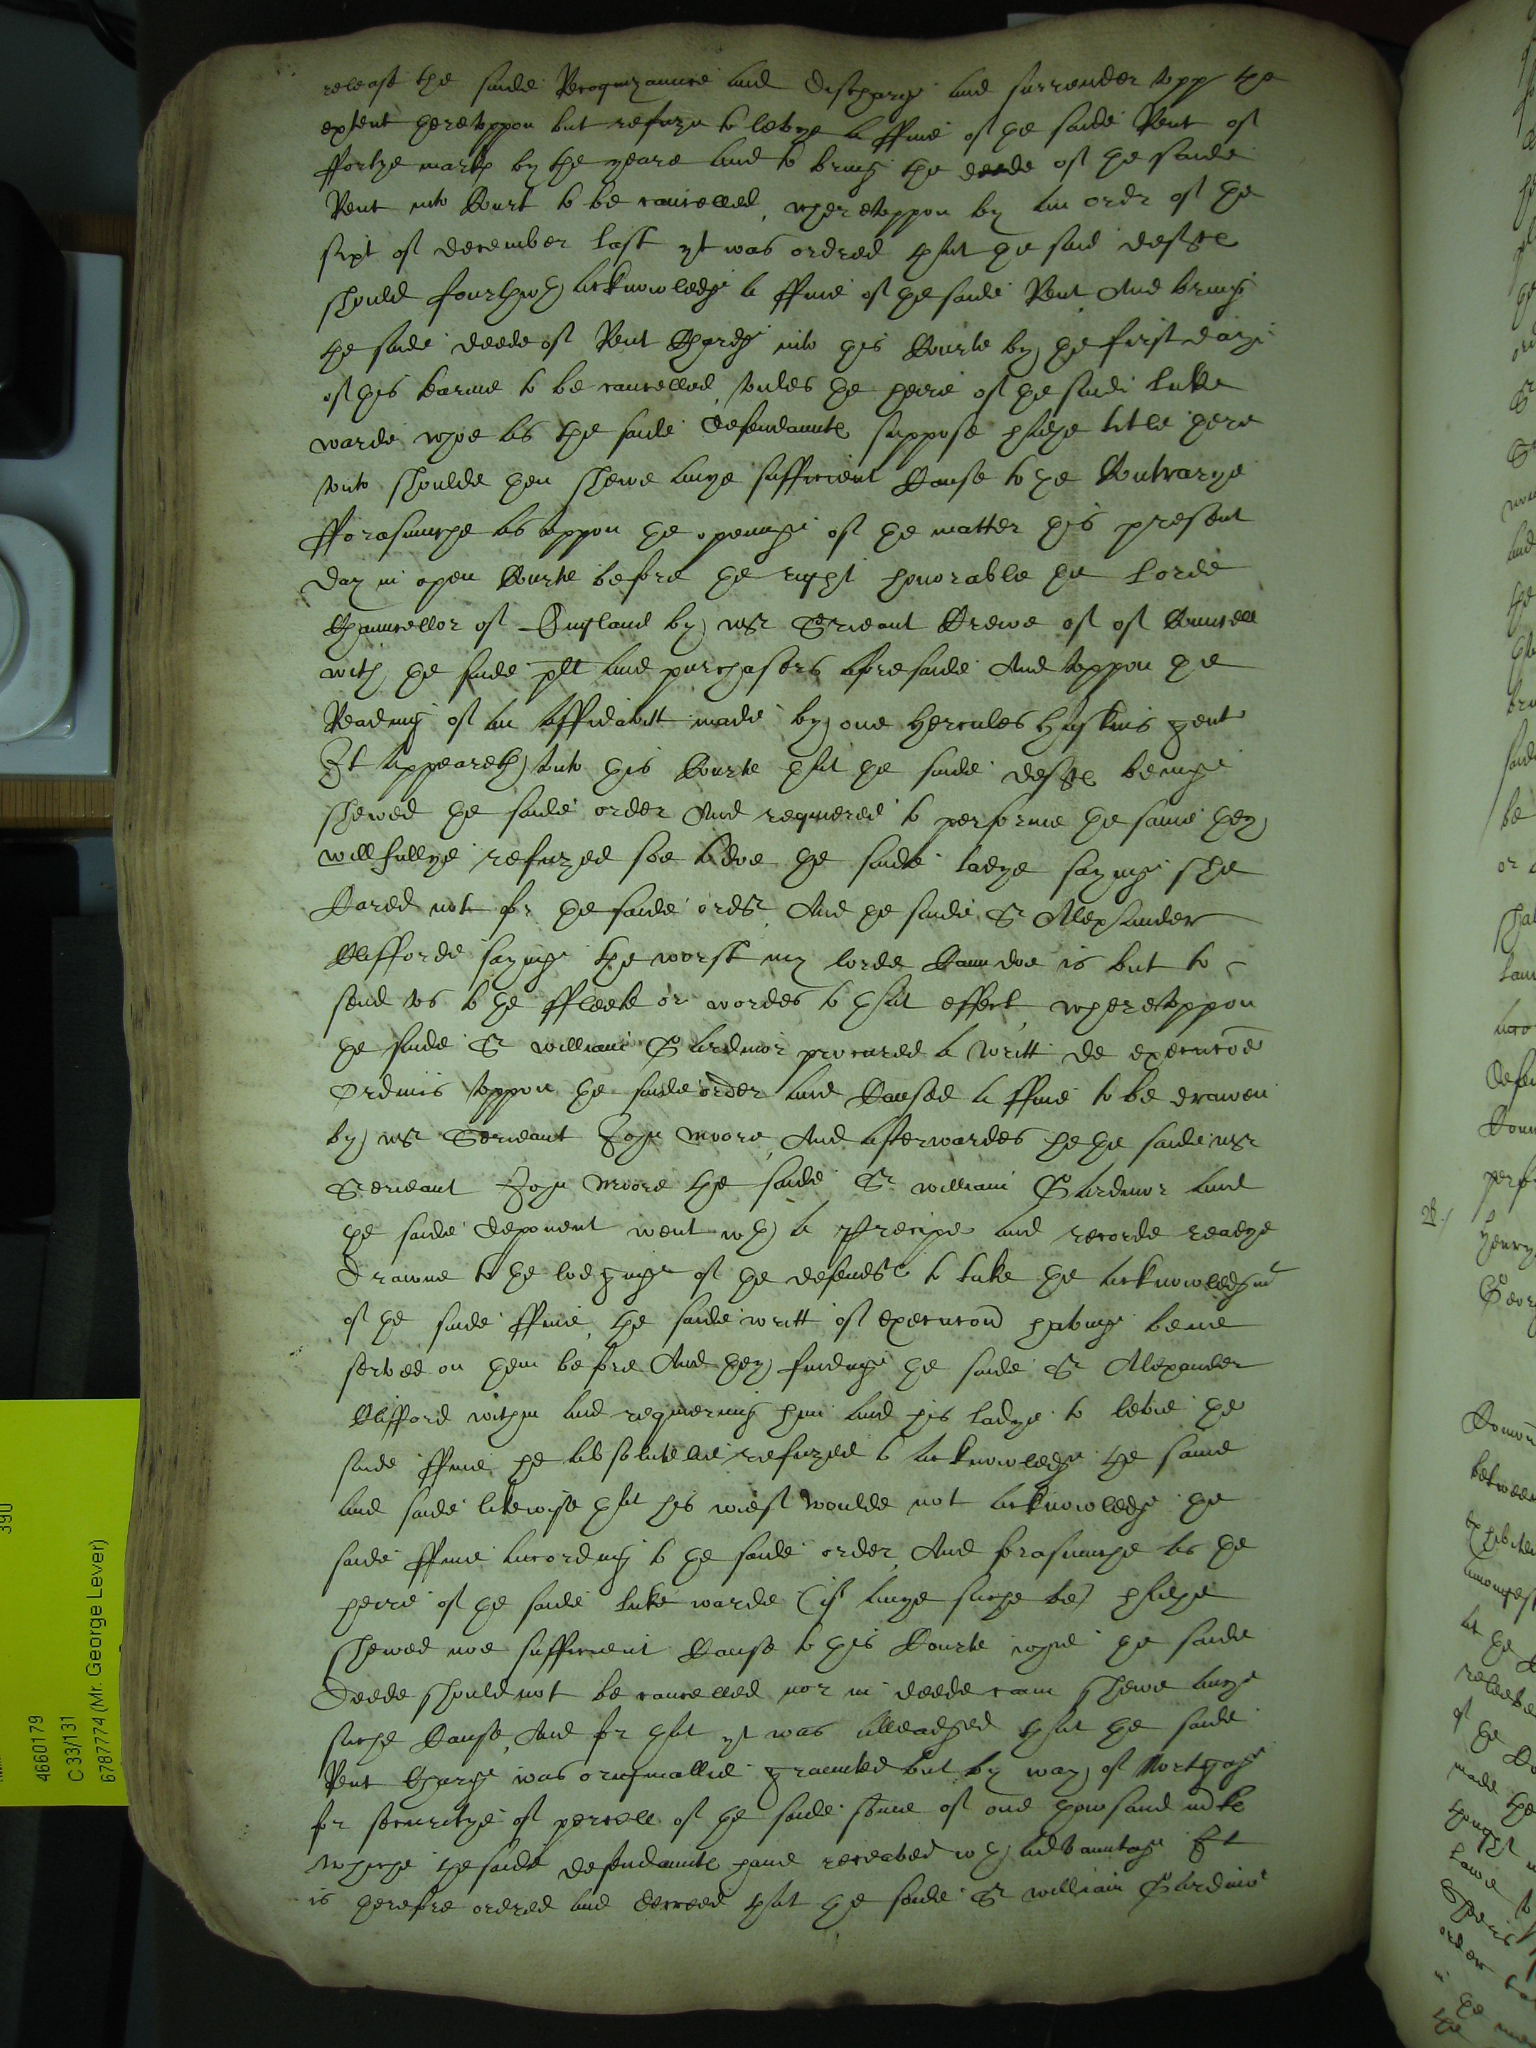 release the saide Recognizaunce and discharge and surrender vpp the
extent herevppon but refuze to levye a ffine of the saide Rent of
ffortye marks by the yeare and to bring the deede of the saide
Rent into Court to be cancelled, wherevppon by an ordr of the
sixt of december last yt was ordred that the said defts
should fourthwth acknowledge a ffine of the saide Rent And bringe
the saide deede of Rent Charge into this Courte by the first daye
of this tearme to be cancelled, vnles the heire of the saide Luke
warde whoe as the saide defendauntes suppose hathe title here
vnto shoulde then shewe anye sufficient Cause to the Contrarye
fforasmuche as vppon the openinge of the matter this present
day in open Courte before the right honorable the Lorde
Chauncellor of England by mr Serieant Crewe of of Councell
with the saide plt and purchasers aforesaide And vppon the
Reading of an affidavitt made by one Hercules Huskins gent
It appeareth vnto this Courte that the saide defts beinge
shewed the saide order And requiered to performe the same they
willfullye refuzed soe to doe the saide ladye sayinge she
Cared not for the saide ordr And the saide Sr Alexsander
Clifforde sayinge the worst my lorde Cann doe is but to
send vs to the ffleete or wordes to that effect, wherevppon
the saide Sr william Gardinor procured a writt de execucoe
ordinis vppon the saide order and Caused a ffine to be drawen
by mr Serieant John Moore, And afterwardes he the saide mr
Serieant John Moore the saide Sr william Gardinor and
the saide deponent went wth a Precipe and recorde readye
drawne to the lodginge of the defendts to take the acknowledgmt
of the saide ffine, the saide writt of execucon havinge bene
served on them before And they findinge the saide Sr Alexander
Clifford within and requiering him and his ladye to levie the
saide ffine he absolutelie refuzed to acknowledge the same
and saide likewise that his wief woulde not acknowledge the
saide ffine according to the saide order, And forasmuche as the
heire of the saide Luke warde (if anye suche be) hathe
shewed noe sufficient Cause to this Courte whie the saide
Deede should not be cancelled nor in deede cann shewe anye
suche Cause, And for that yt was alleadged that the saide
Rent Charge was originallie graunted but by way of Mortgage
for securitye of percell of the saide some of one thowsand mks
whiche the saide defendauntes have receaved wth advauntage It
is therefore ordred and decreed that the saide Sr william Gardinor
4660179
C 33/131
6787774 (Mr. George Lever)
390